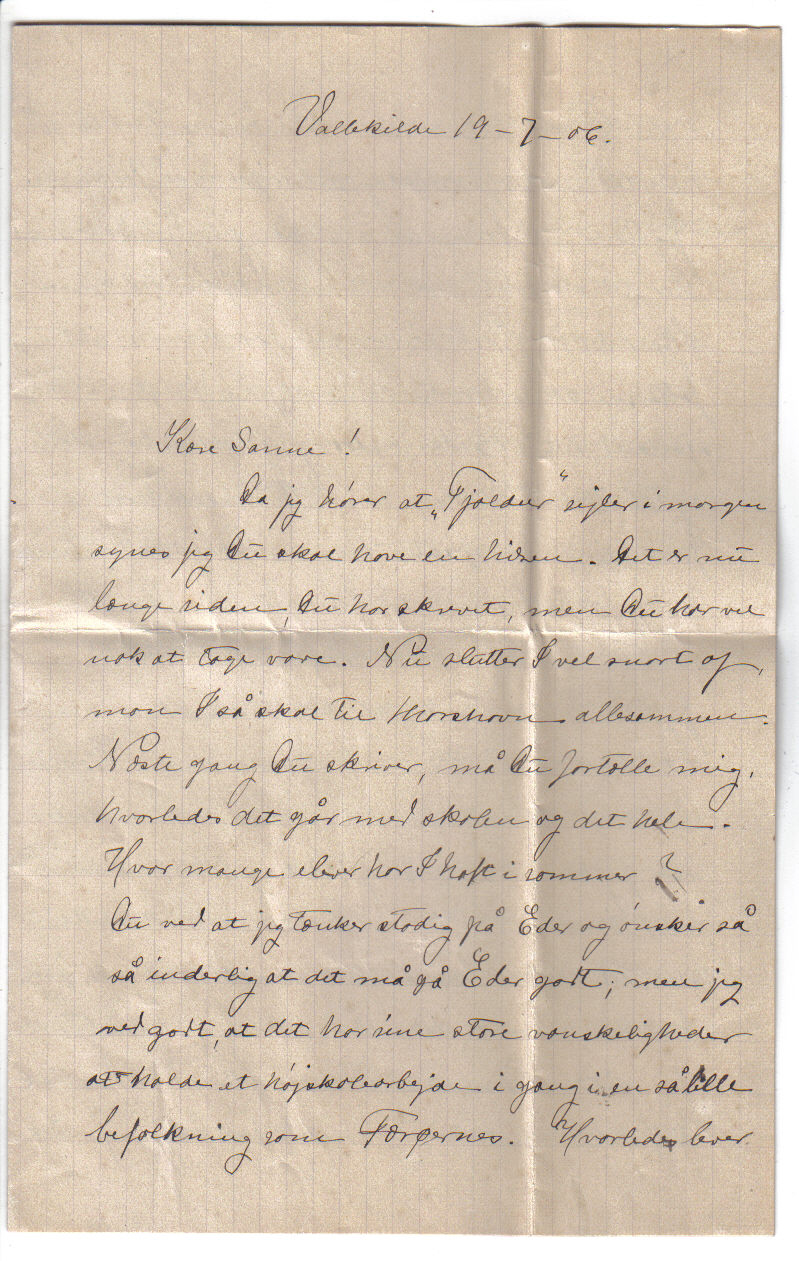 Vallekilde 19-7-06.
Kære Sanne!
Da jeg hører at „Tjaldur“ sejler i morgen
synes jeg Du skal have en hilsen. Det er nu
længe siden, Du har skrevet, men Du har vel
nok at tage vare. Nu slutter I vel snart af,
mon I så skal til Thorshavn allesammen.
Næste gang Du skriver, må Du fortælle mig,
hvorledes det går med skolen og det hele.
Hvor mange elever har I haft i sommer?
Du ved at jeg tænker stadig på Eder og ønsker så
så inderlig at det må gå Eder godt; men jeg
ved godt, at det har sine store vanskeligheder
at holde et højskolearbejde i gang i en så lille
befolkning som Færøernes. Hvorledes lever